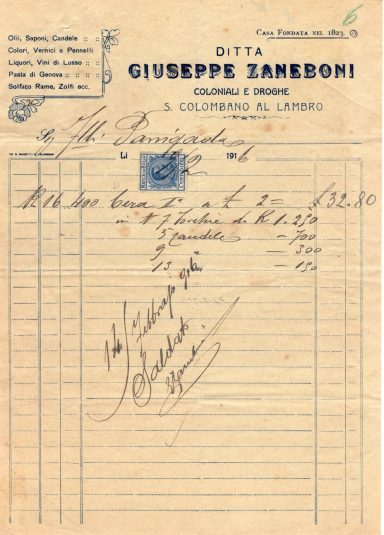 6
CASA FONDATA NEL 1823
Olii, Saponi, Candele :: ::
Colori, Vernici e Pennelli
Liquori, Vini di Lusso :: ::
Pasta di Genova :: :: ::
Solfato Rame, Zolfi ecc.
DITTA
GIUSEPPE ZANEBONI
COLONIALI E DROGHE
S. COLOMBANO AL LAMBRO
Sig
Li 1916
K 16.400 Cera a £ 2 = £ 32.80
in # 7 Torchie di K 1.250
5 Candele - 700
9 " - 300
13 " - 150
14 Febbraio 916
Saldato